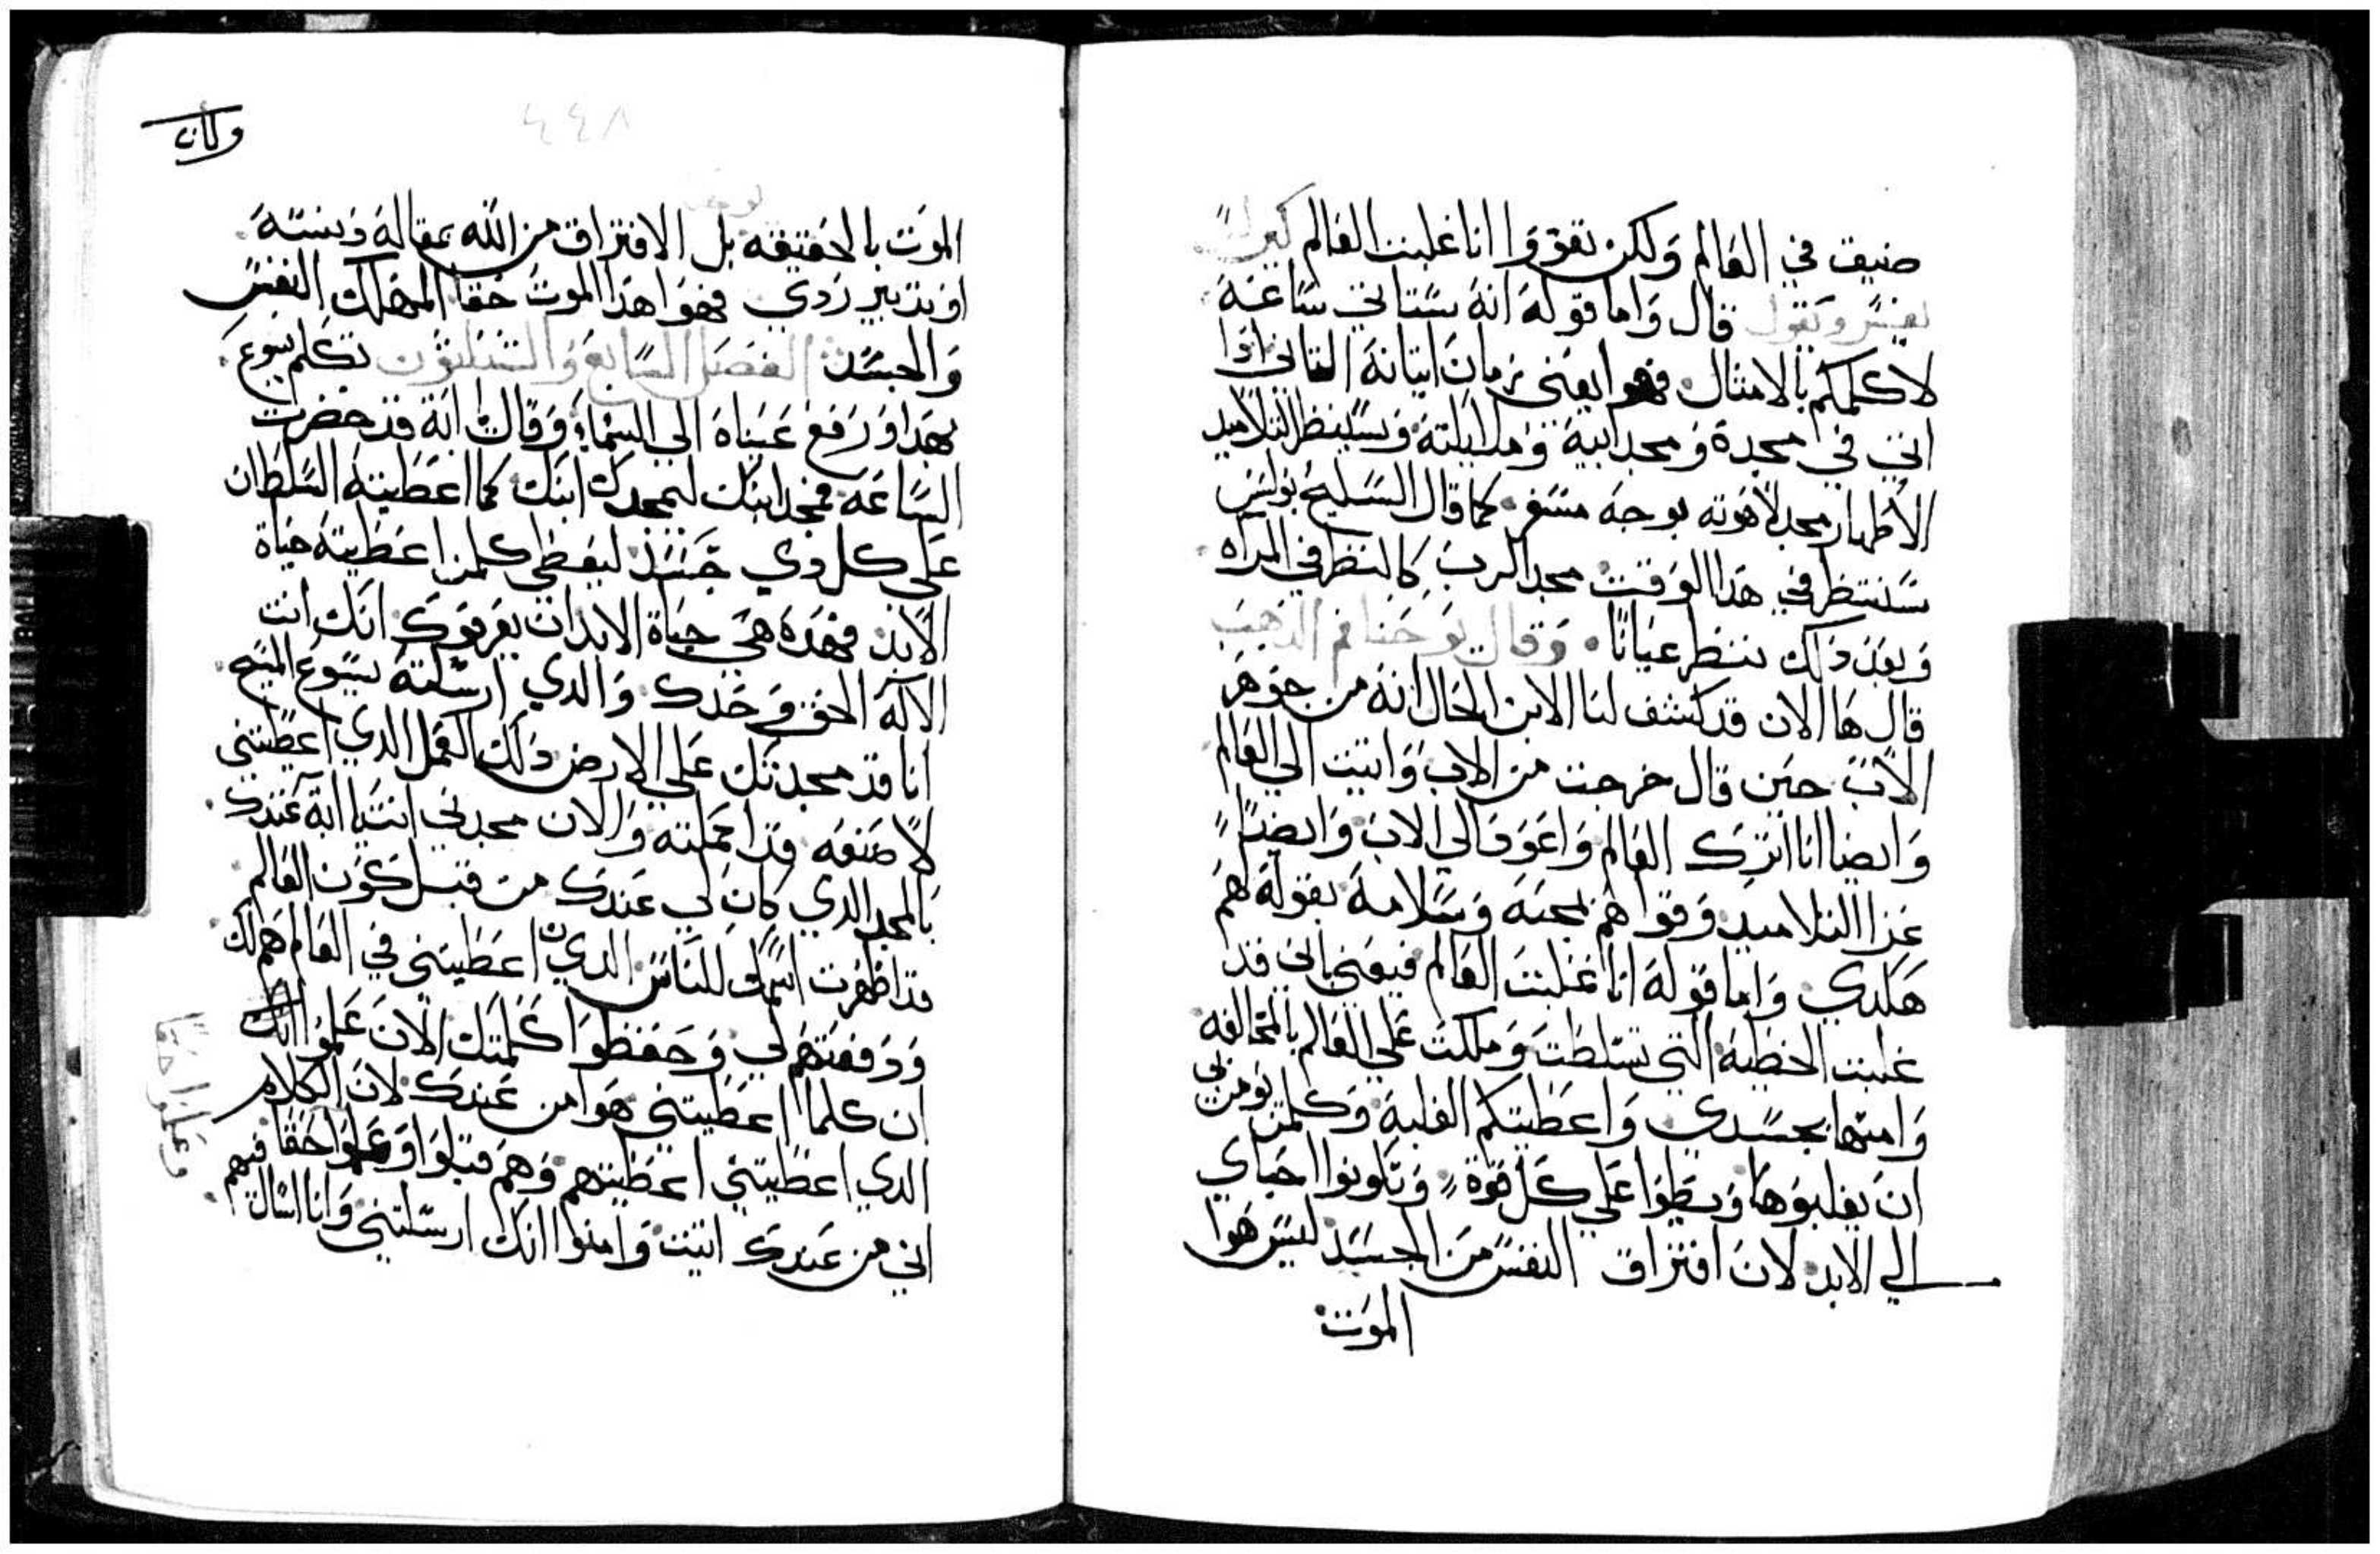 ضيق في العالم ولكن تقووا انا غلبت العالم كيرلس
يفسر ويقول قال واما قوله انه ستاتي ساعه
لا كلمكم بالامثال فهوا يعني زمان اتيانه التاني ادا
اتي في مجده ومجد ابيه وملايكته وسينظر التلاميد
الاطهار مجد لاهوته بوجه مسفر كما قال السليح بولس
سننظر في هدا الوقت مجد الرب كالنظر في المراه
وبعد دلك ننظر عيانا وقال يوحنا فم الدهب
قال ها الان قد كشف لنا الابن الخال انه من جوهر
الاب حين قال خرجت من الاب واتيت الي العالم
وايضا انا اترك العالم واعود الي الاب وايضا
عزا التلاميد وقواهم بمحبه وسلامه بقوله لهم
هكدي واما قوله انا غلبت العالم فيعني باني قد
غلبت الخطيه التي تسلطت وملكت علي العالم بالمخالفه
وامتها بجسدي واعطيتكم الغلبه وكلمن يومن بي
ان يغلبوها ويطوا علي كل قوه وتكونوا احياي
الي الابد لان افتراق النفس من الجسد ليس هوا
الموت
ولان
٤٤٨
يوحنا
الموت بالحقيقه بل الافتراق من الله بمقاله دنسه
او بتدبير ردي فهوا هدا الموت حقا المهلك النفس
والجسد الفصل السابع والتلاتون تكلم يسوع
بهدا ورفع عيناه الي السماء وقال ابة قد حضرت
الساعه فمجد ابنك ليمجدك ابنك كما اعطيته السلطان
علي كل دي جسد ليعطي كلمن اعطيته حياة
الابد فهده هي حياة الابد ان يعرفوك انك انت
الاله الحق وحدك والدي ارسلته يسوع المسيح
انا قد مجدتك علي الارض دلك العمل الدي اعطيتني
لاصنعه قد اكملته والان مجدني انت يا ابة عندك
بالمجد الدي كان لي عندك من قبل كون العالم
قد اظهرت اسمك للناس الدين اعطيتني في العالم هم لك
ودفعتهم لي وحفظوا كلمتك الان علموا انك
ان كلما اعطيتني هوا من عندك لان الكلام
الدي اعطيتني اعطيتهم وهم قبلوا وعلموا حقا
اني من عندك اتيت وامنوا انك ارسلتني وانا اسال فيهم
وعلموا حقا